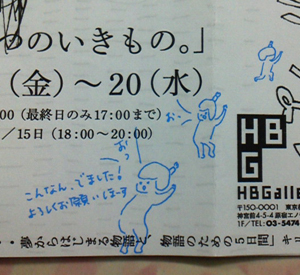 つのいきもの。」
(金)～20(水)
00 (最終日のみ17:00まで)
/15日 (18:00～20:00)
おっ
おっ
こんなん、でました!
よろしくお願いしまーす
HB
G
HBGalle
〒150-0001 東京
神宮前4-5-4 原宿エノ
1F/TEL: 03-5474
・夢からはじまる物語で、物語のための5日間」キー